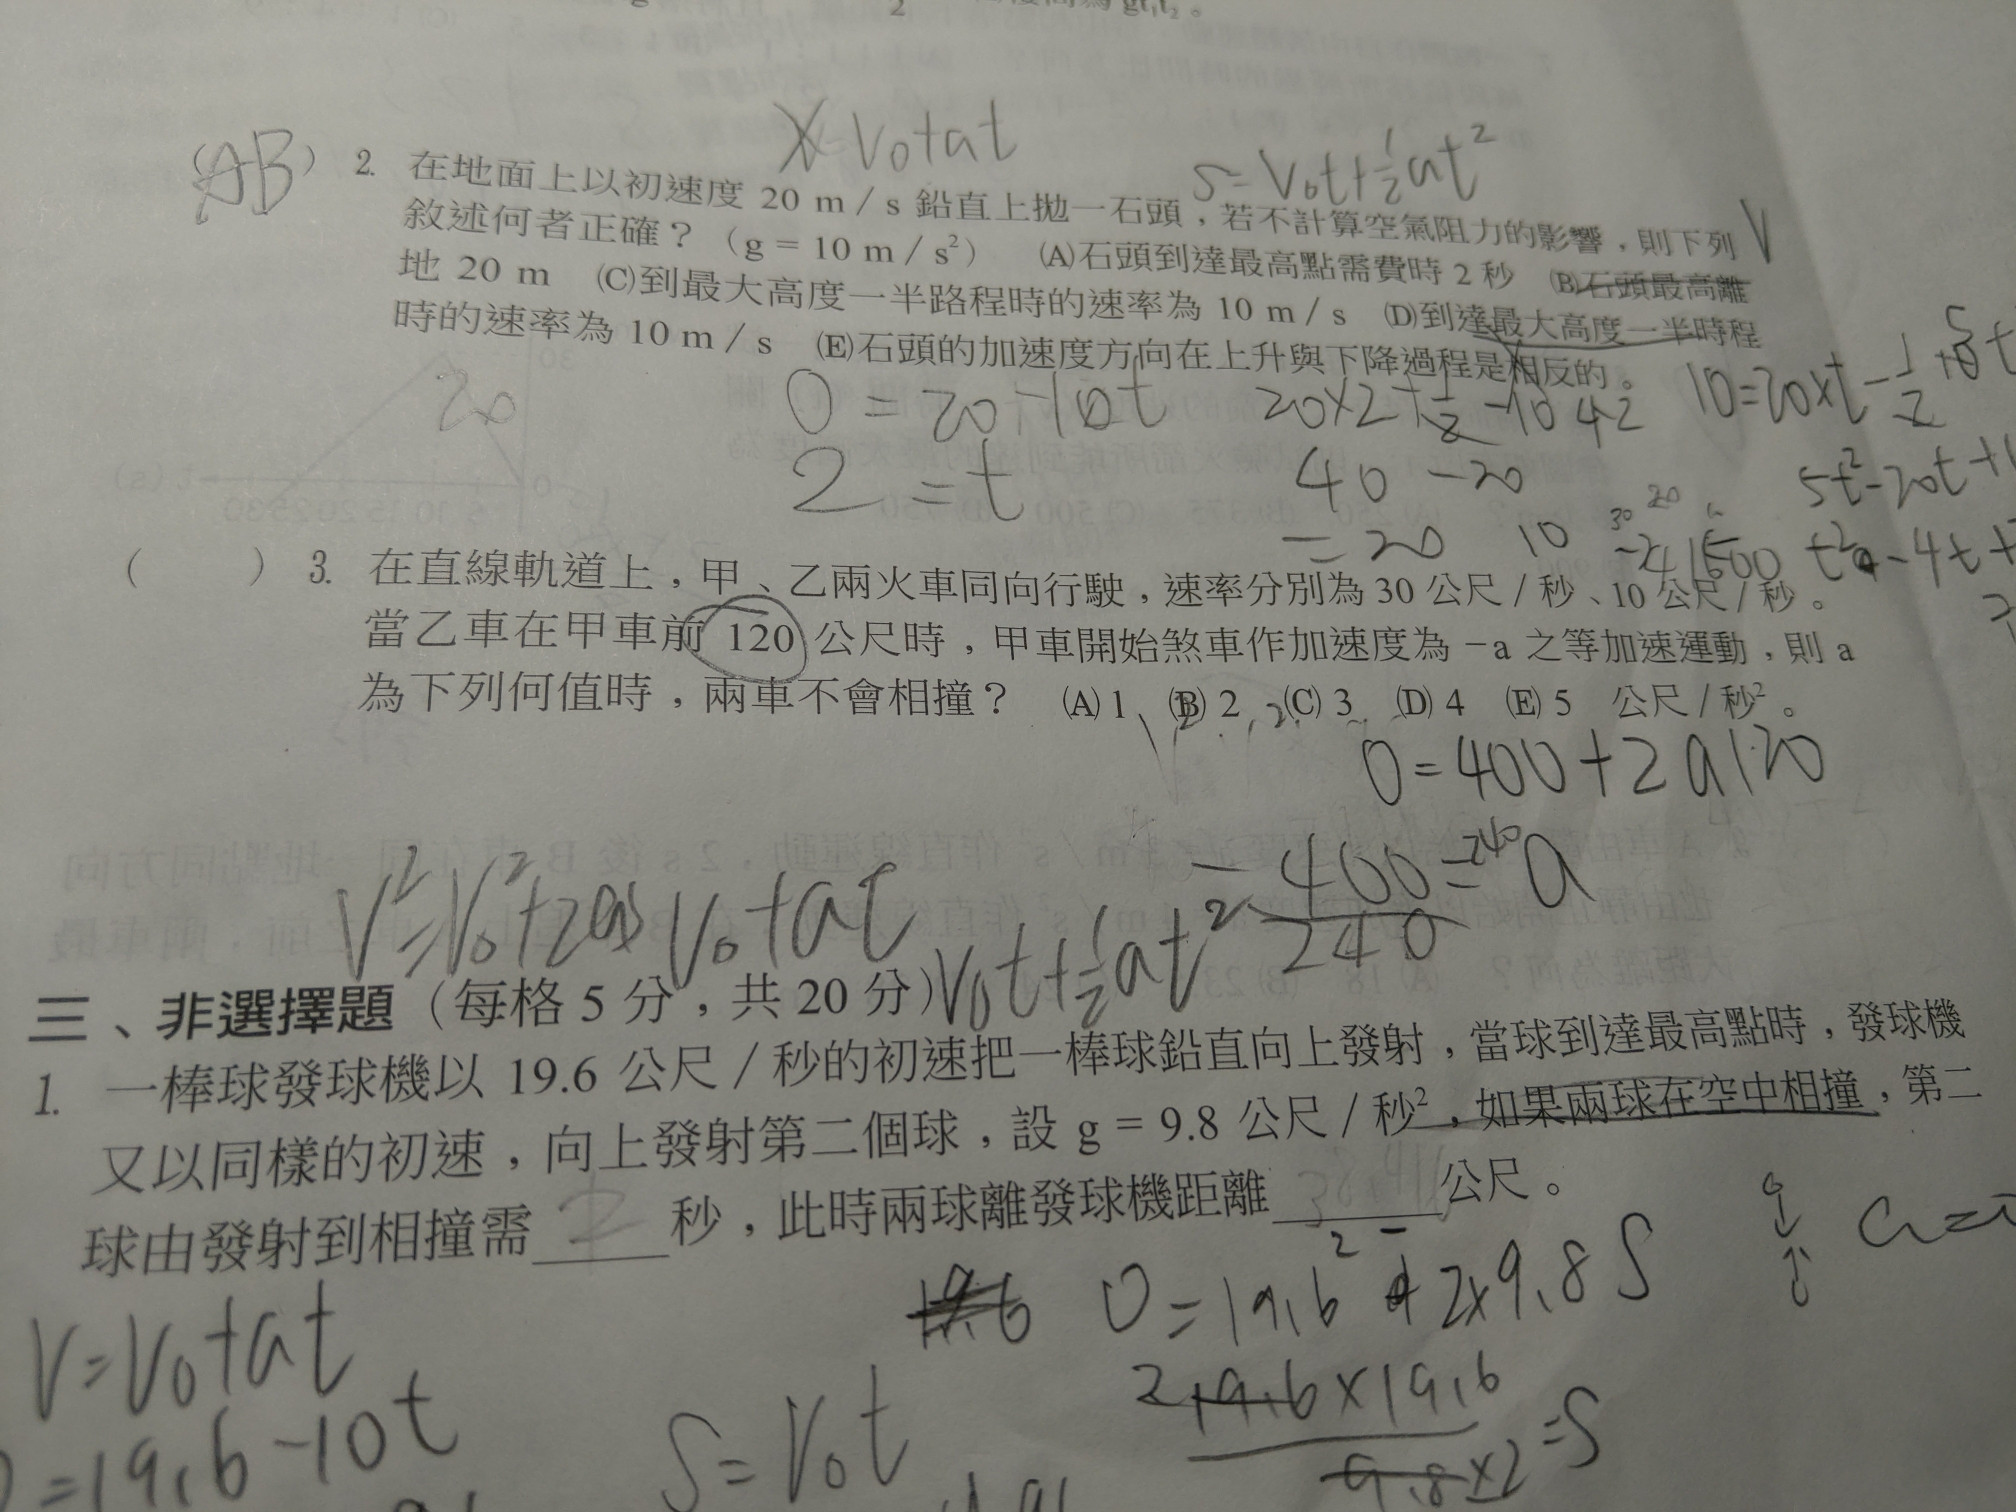 X V₀+at
S=V₀t+½at²
(AB) 2. 在地面上以初速度 20 m/s 鉛直上拋一石頭，若不計算空氣阻力的影響，則下列
敘述何者正確？（g = 10 m/s²） (A)石頭到達最高點需費時 2 秒 (B)石頭最高離
地 20 m (C)到最大高度一半路程時的速率為 10 m/s (D)到達最大高度一半時程
時的速率為 10 m/s (E)石頭的加速度方向在上升與下降過程是相反的。
20 0=20-10t 20×2+½-10 4
2=t 40-20
=20 10
5t²-20t+1
t²-4t+
( ) 3. 在直線軌道上，甲、乙兩火車同向行駛，速率分別為 30 公尺/秒、10 公尺/秒。
當乙車在甲車前 120 公尺時，甲車開始煞車作加速度為 -a 之等加速運動，則 a
為下列何值時，兩車不會相撞？ (A) 1 (B) 2 (C) 3 (D) 4 (E) 5 公尺/秒²。
0=400+2a120
-400=240a
240
V²=V₀²+2as V₀+at V₀t+½at²
三、非選擇題（每格 5 分，共 20 分）
1. 一棒球發球機以 19.6 公尺/秒的初速把一棒球鉛直向上發射，當球到達最高點時，發球機
又以同樣的初速，向上發射第二個球，設 g = 9.8 公尺/秒²，如果兩球在空中相撞，第二
球由發射到相撞需 2 秒，此時兩球離發球機距離 公尺。
0=19.6²-2×9.8 S
V=V₀+at
2 19.6×19.6
9.8×2 =S
=19.6-10t
S=V₀t